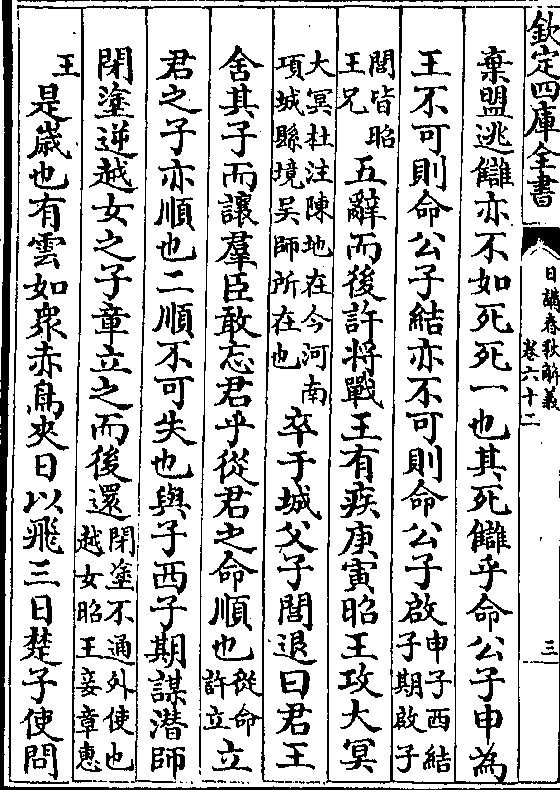 欽定四庫全書
日講春秋解義
卷六十二
三
棄盟逃讎亦不如死死一也其死讎乎命公子申為
王不可則命公子結亦不可則命公子啟申子西結子期啟子
閭皆昭王兄五辭而後許將戰王有疾庚寅昭王攻大冥
大冥杜注陳地在今河南項城縣境吳師所在也卒于城父子閭退曰君王
舍其子而讓羣臣敢忘君乎從君之命順也從命許立立
君之子亦順也二順不可失也與子西子期謀潛師
閉塗逆越女之子章立之而後還閉塗不通外使也越女昭王妾章惠
王是歲也有雲如眾赤鳥夾日以飛三日楚子使問